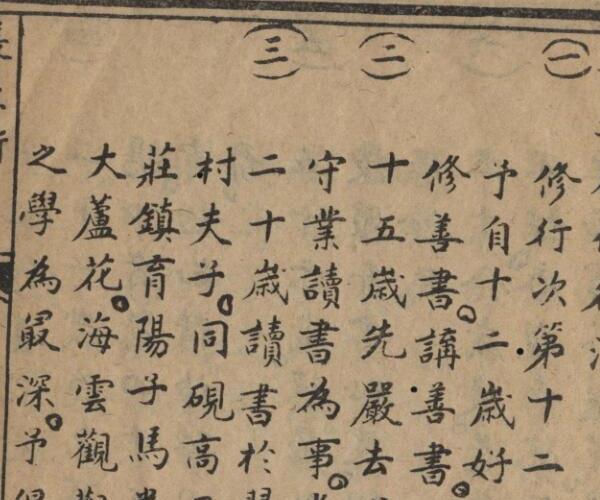 (一)
修行次第十二
予自十二歲好
修善書。講善書。
(二)
十五歲先嚴去
守業讀書為事。
(三)
二十歲讀書於
村夫子。同硯高
莊鎮育陽子馬
大蘆花。海雲觀
之學為最深。予